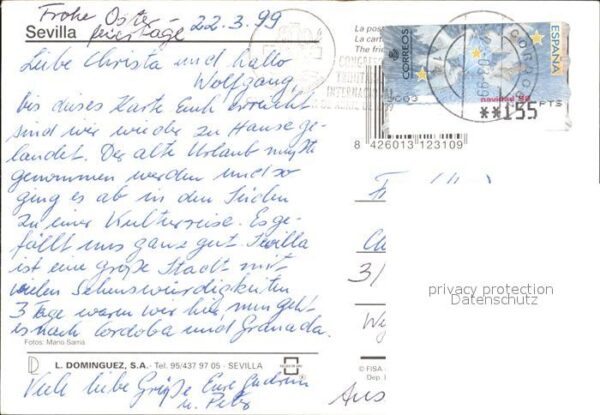 Frohe Oster-
feiertage
22.3.99
Sevilla
Liebe Christa und hallo
Wolfgang
bis diese Karte Euch erreicht
sind wir wieder zu Hause ge-
landet. Der alte Urlaub mußte
genommen werden und so
ging es ab in den Süden
zu einer Kulturreise. Es ge-
fällt uns ganz gut. Sevilla
ist eine große Stadt mit
vielen Sehenswürdigkeiten
3 Tage waren wir hier, nun geht
es nach Cordoba und Granada.
Fotos: Mario Sarria
L. DOMINGUEZ, S.A.- Tel. 95/437 97 05 - SEVILLA
Viele liebe Grüße Eure Gudrun
u. Peter
La post
La carr
The frien
CORREOS
ESPAÑA
navidad 98
**155 PTS
CORREOS
8 426013 123109
3/
privacy protection
Datenschutz
© FISA
Dep.
Aus